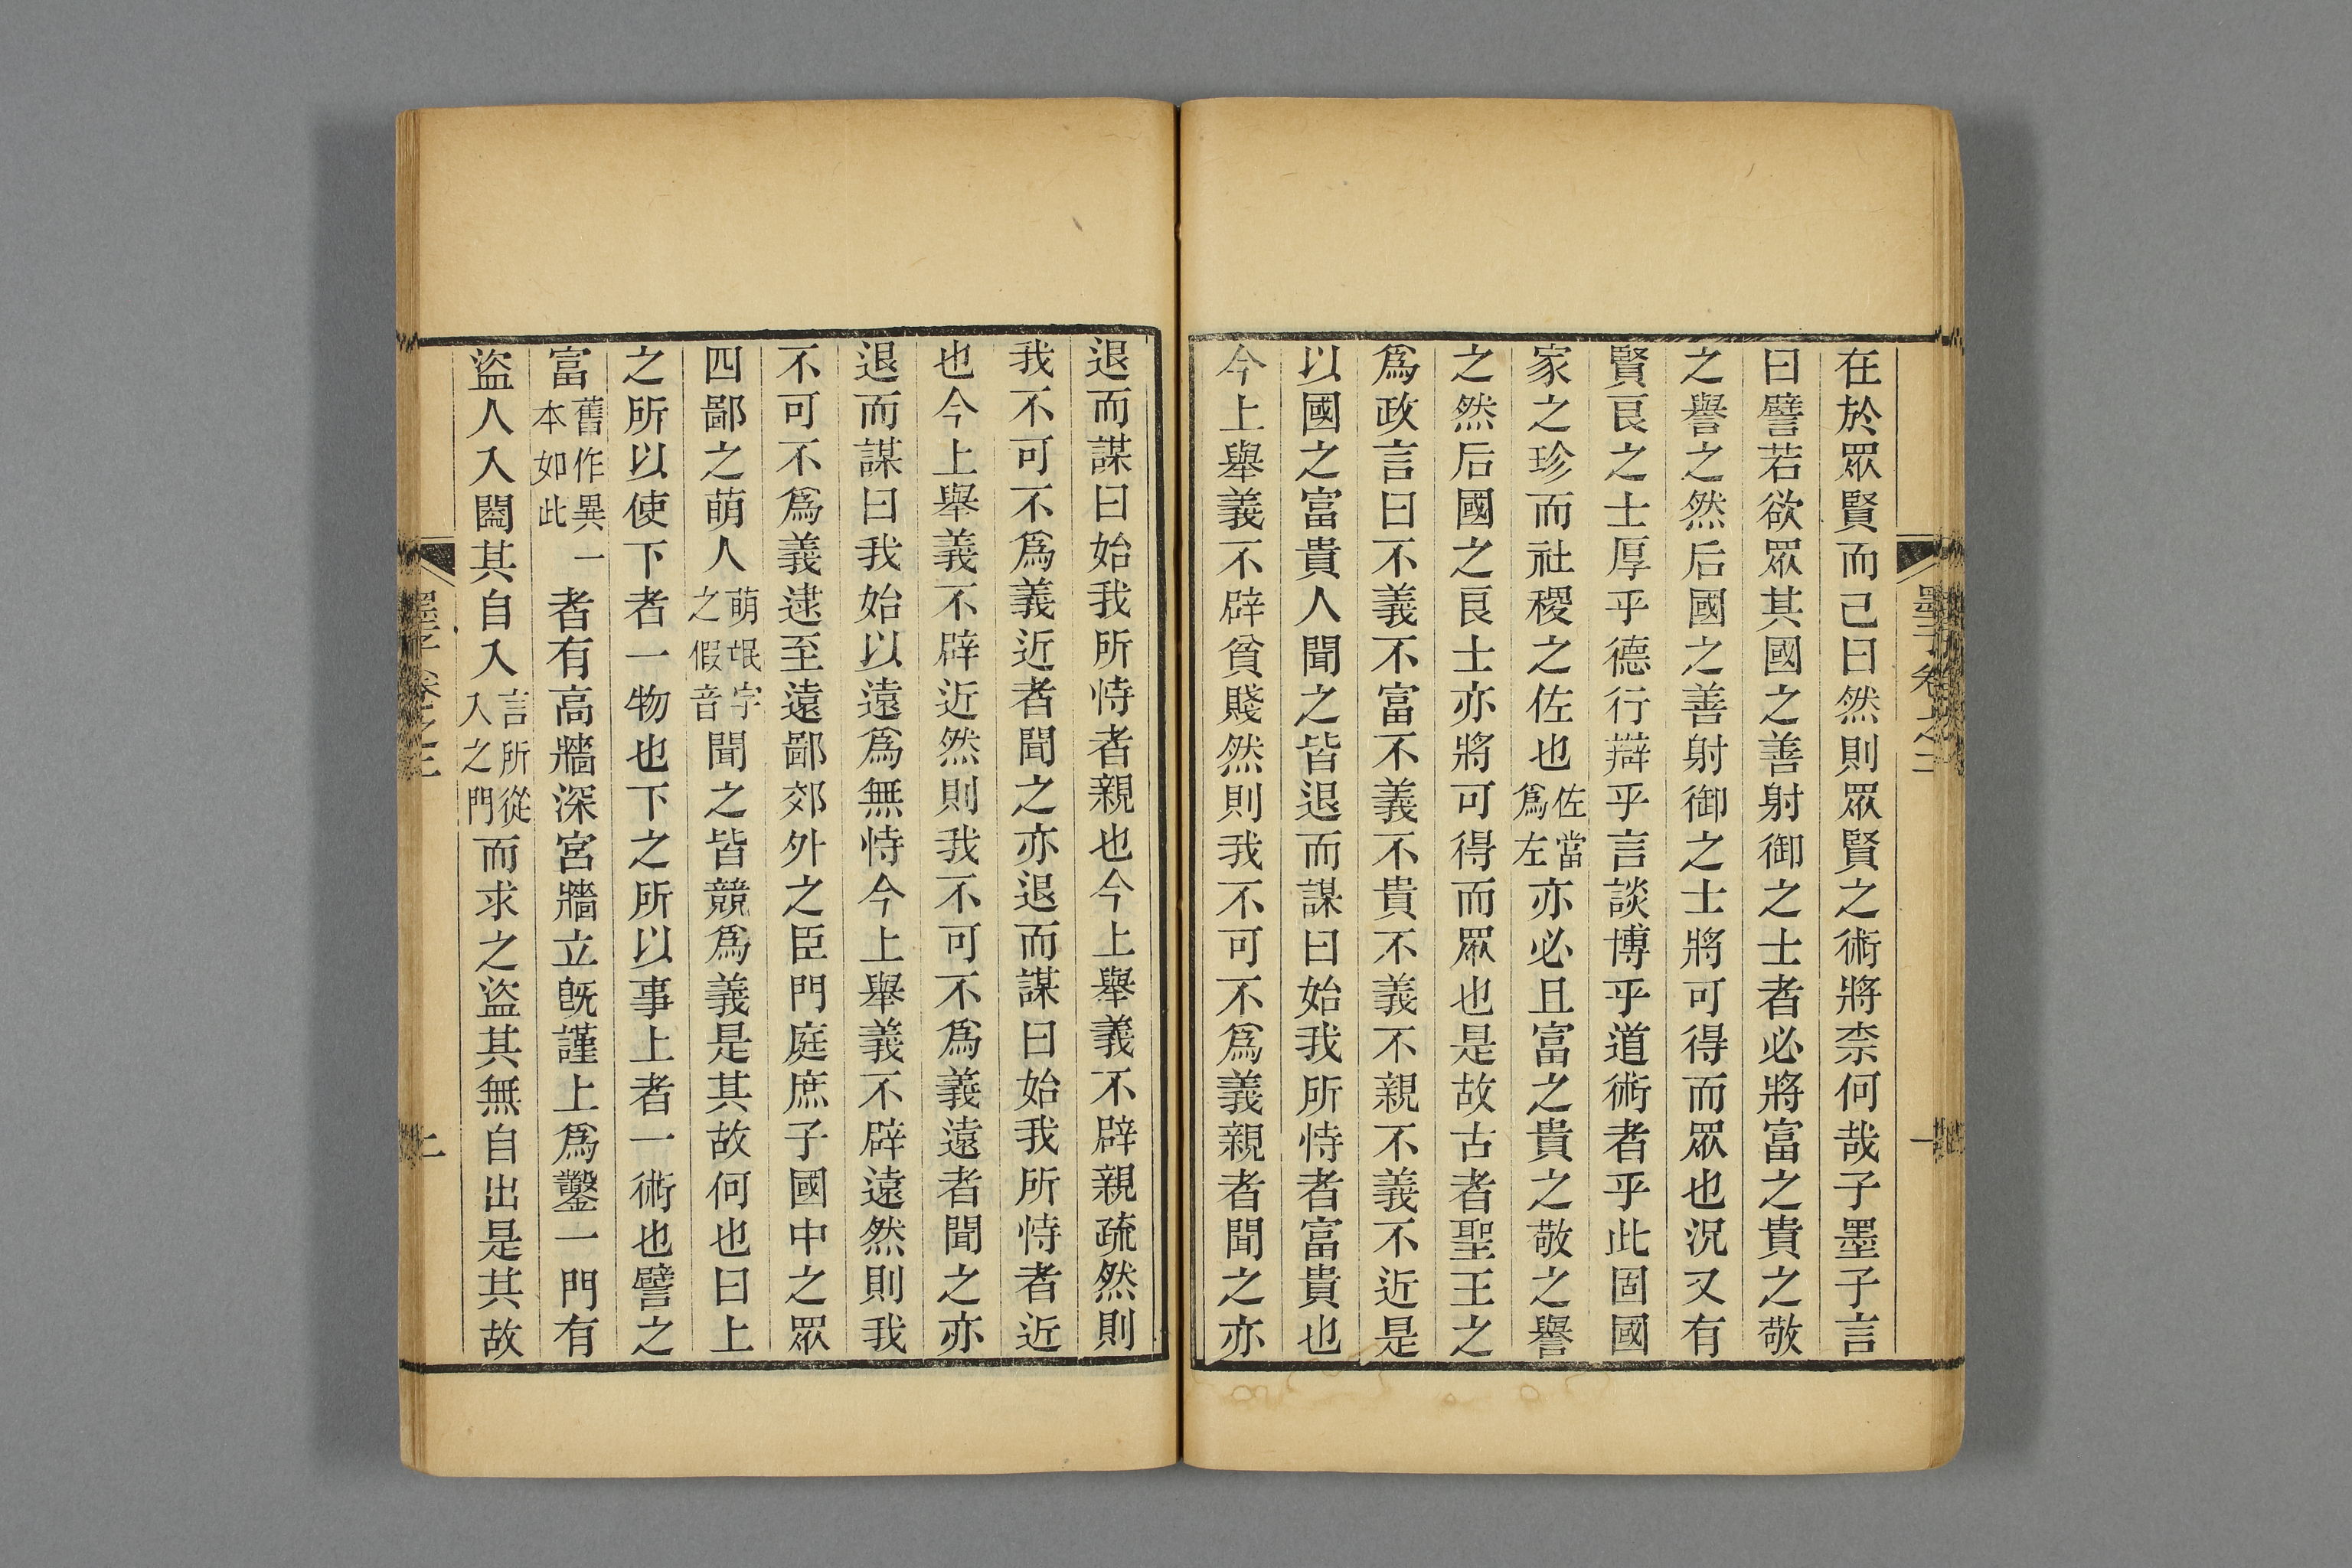 在於眾賢而己曰然則眾賢之術將柰何哉子墨子言
曰譬若欲眾其國之善射御之士者必將富之貴之敬
之譽之然后國之善射御之士將可得而眾也況又有
賢良之士厚乎德行辯乎言談博乎道術者乎此固國
家之珍而社稷之佐也佐當爲左亦必且富之貴之敬之譽
之然后國之良士亦將可得而眾也是故古者聖王之
爲政言曰不義不富不義不貴不義不親不義不近是
以國之富貴人聞之皆退而謀曰始我所恃者富貴也
今上舉義不辟貧賤然則我不可不爲義親者聞之亦
退而謀曰始我所恃者親也今上舉義不辟親疏然則
我不可不爲義近者聞之亦退而謀曰始我所恃者近
也今上舉義不辟近然則我不可不爲義遠者聞之亦
退而謀曰我始以遠爲無恃今上舉義不辟遠然則我
不可不爲義逮至遠鄙郊外之臣門庭庶子國中之眾
四鄙之萌人萌氓字之假音聞之皆競爲義是其故何也曰上
之所以使下者一物也下之所以事上者一術也譬之
富舊作異一本如此者有高牆深宮牆立既謹上爲鑿一門有
盜人入闔其自入言所從入之門而求之盜其無自出是其故
墨子卷之二
墨子卷之二
二